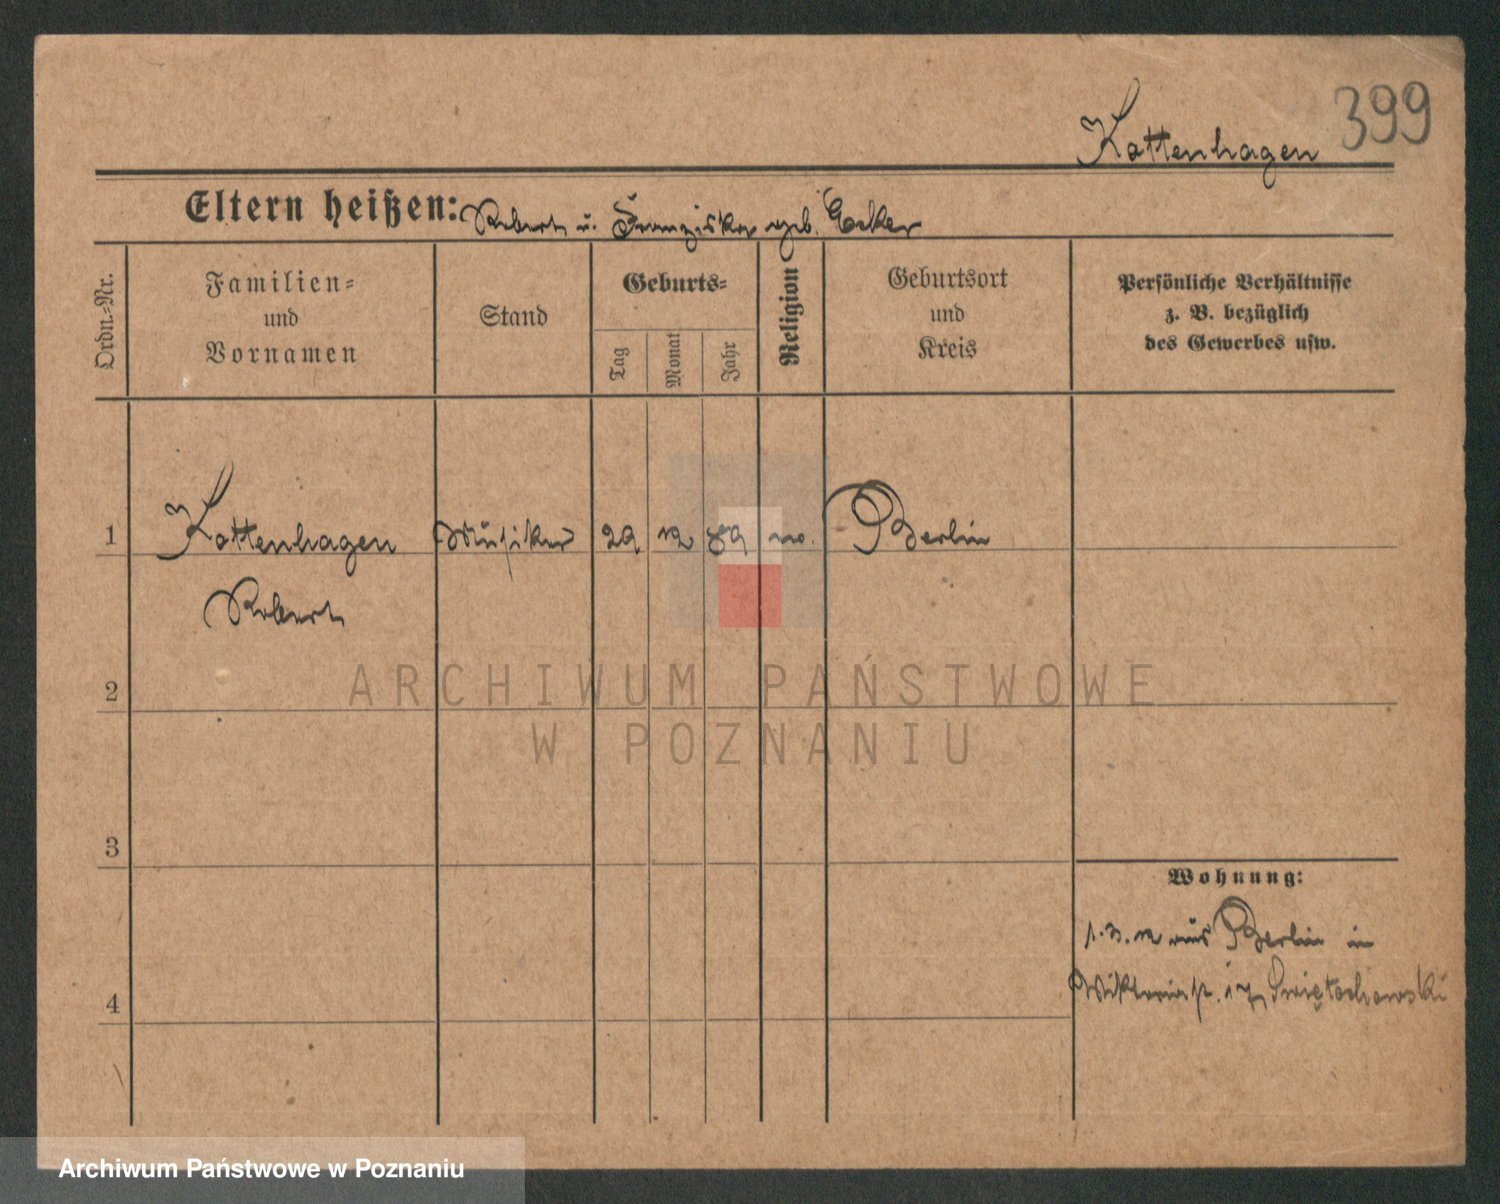 399
Kottenhagen
Eltern heißen: Robert u. Franziska geb. Ecker
Ordn.-Nr.
Familien-
und
Vornamen
Stand
Geburts-
Tag
Monat
Jahr
Religion
Geburtsort
und
Kreis
Persönliche Verhältnisse
z. B. bezüglich
des Gewerbes usw.
1 Kottenhagen Musiker 29 12 89 Berlin
Robert
2
3
4
Wohnung:
aus Berlin in
Viktoriastr. 17 Świętochowski
ARCHIWUM PAŃSTWOWE
W POZNANIU
Archiwum Państwowe w Poznaniu